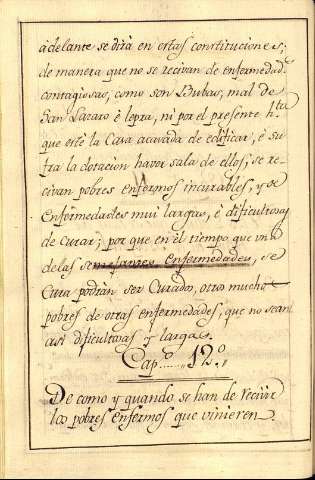 adelante se dirà en estas constituciones;
de manera que no se recivan de enfermedads.
contagiosas, como son Bubas, mal de
San Lazaro è lepra, ni por el presente hta.
que esté la Casa acavada de edificar, è su
fra la dotacion haver sala de ellos, se re-
civan pobres enfermos incurables, y de
Enfermedades mui largas, è dificultosas
de curar; por que en el tiempo que una
de las semejantes enfermedades, se
Cura podrian ser Curados, otro muchos
pobres de otras enfermedades, que no sean
assi dificultosas y largas.
Cap.º ...... 12.º,
De como y quando se han de recivir
los pobres enfermos que vinieren